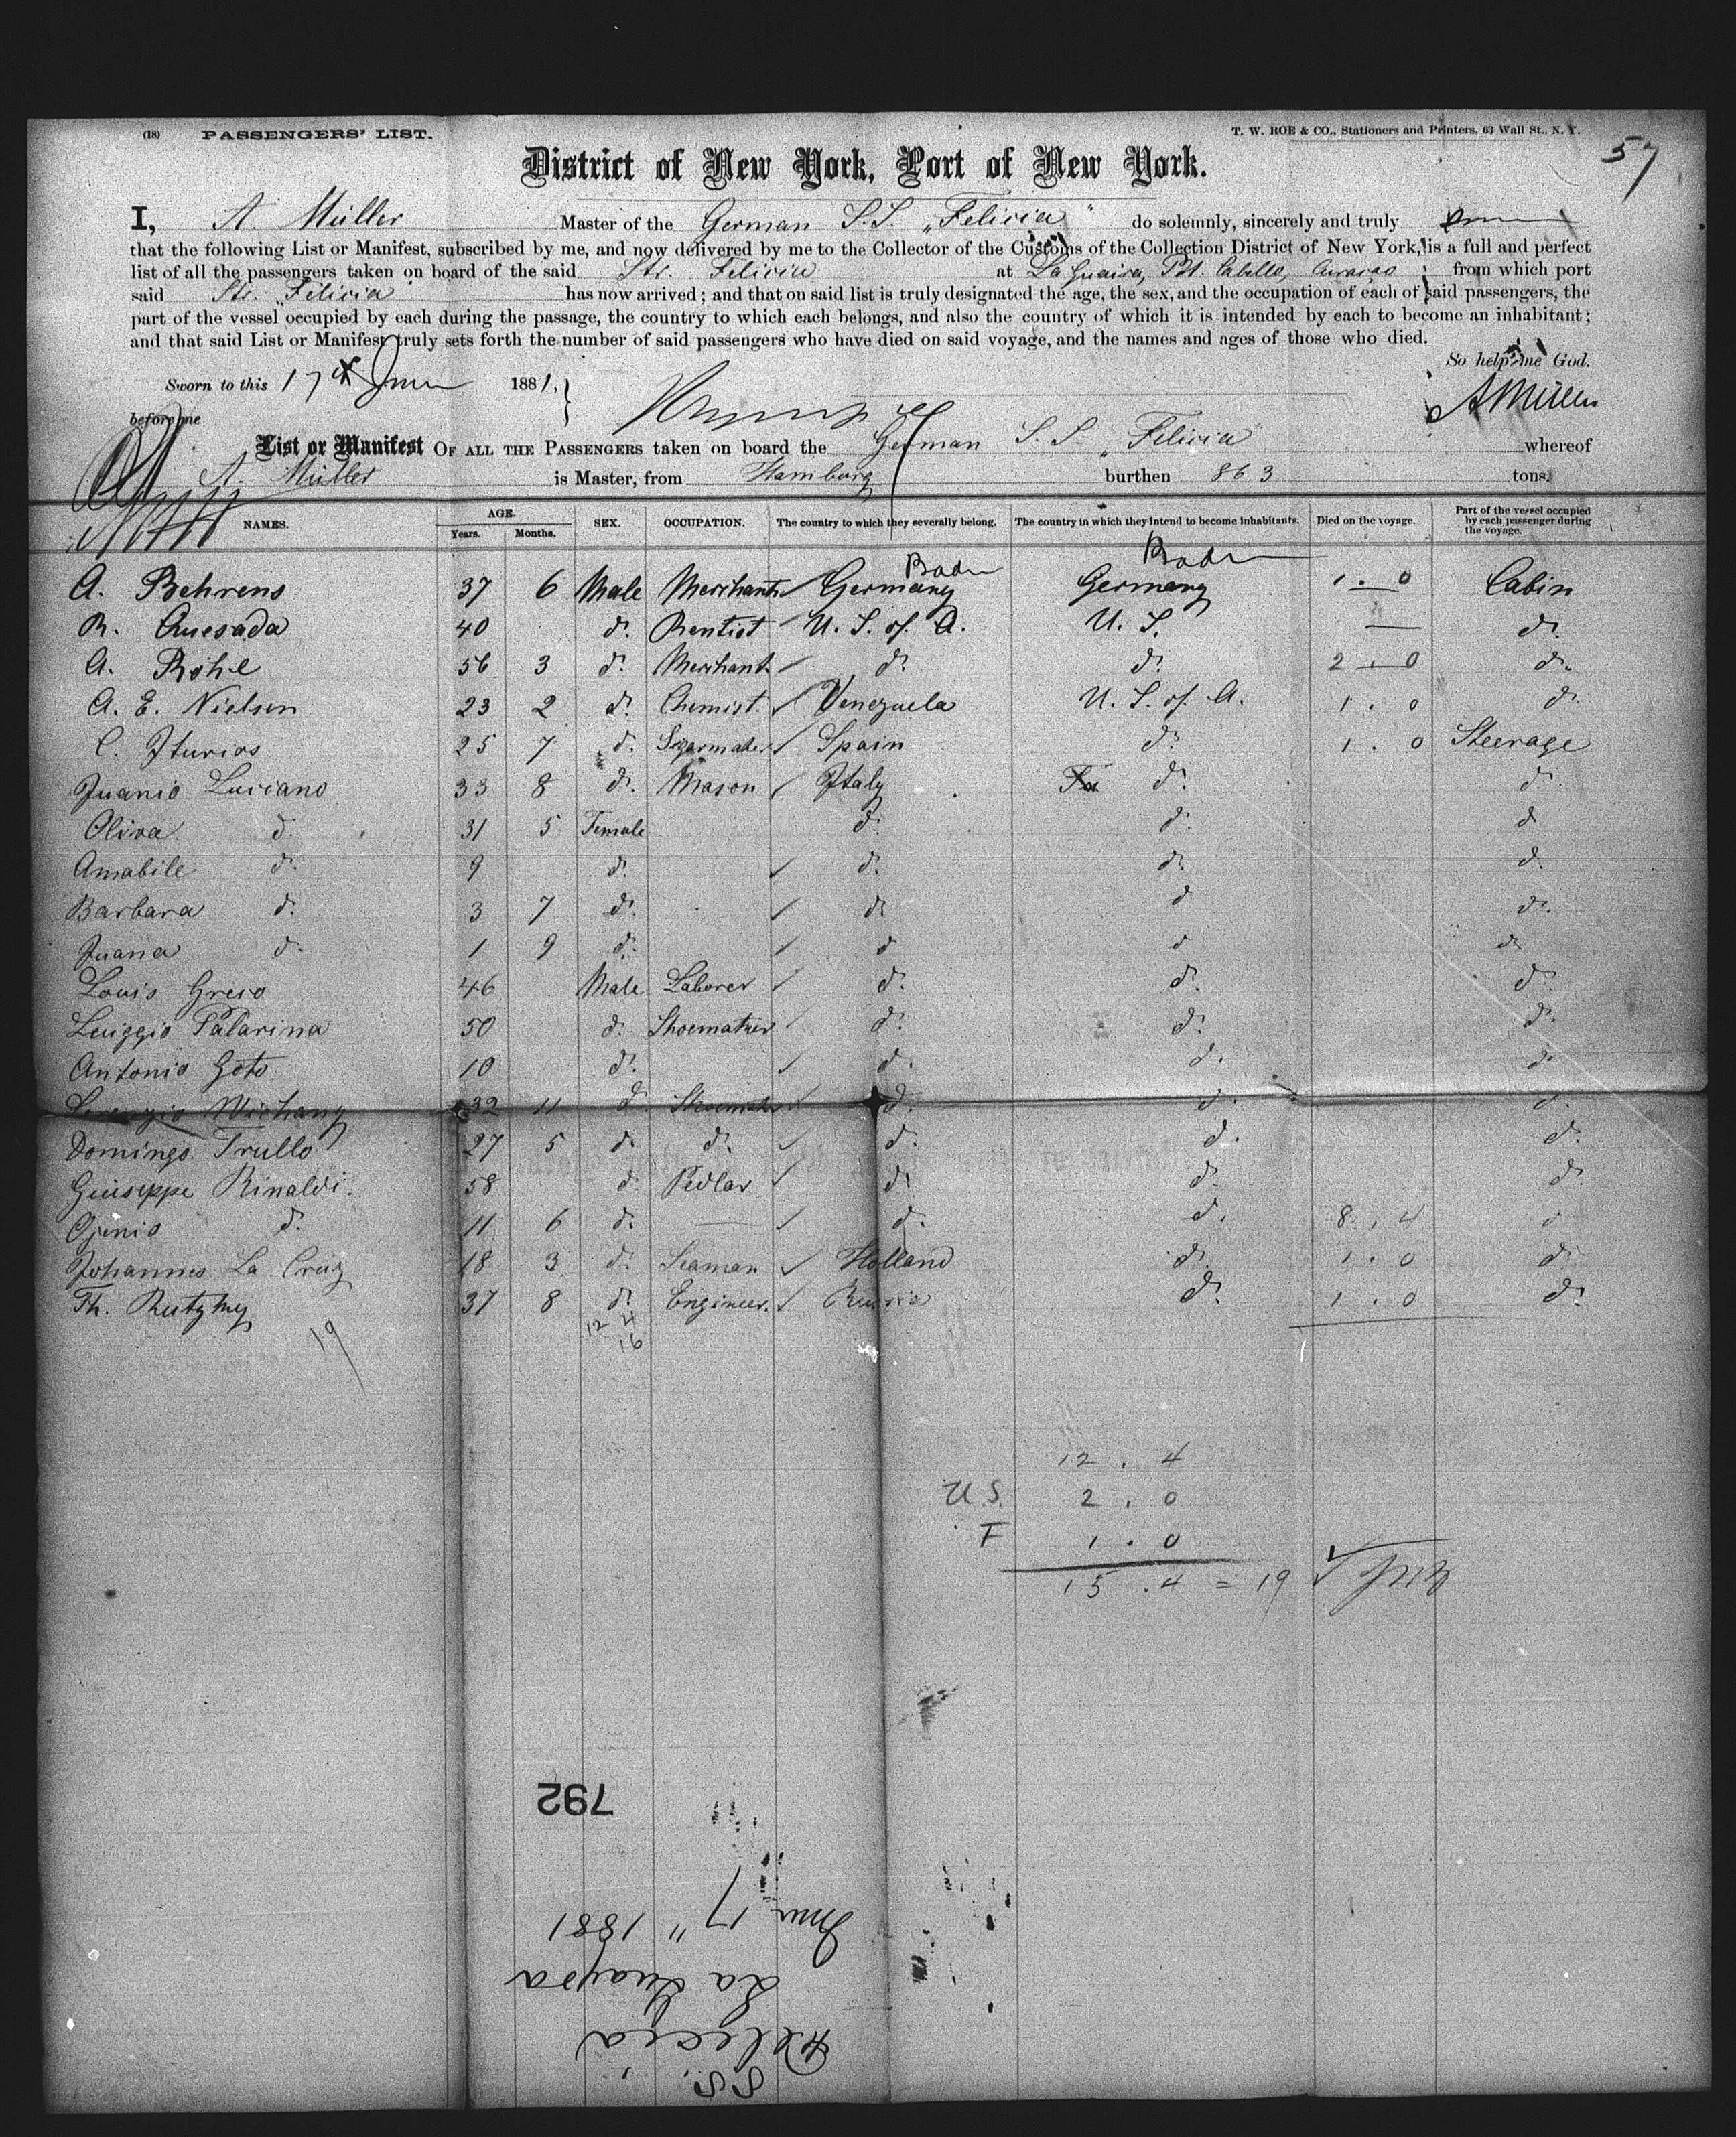 (18) PASSENGERS' LIST. T. W. ROE & CO., Stationers and Printers, 63 Wall St., N. Y.
57
District of New York, Port of New York.
I, A. Müller Master of the German S.S. „Felicia" do solemnly, sincerely and truly
that the following List or Manifest, subscribed by me, and now delivered by me to the Collector of the Customs of the Collection District of New York, is a full and perfect
list of all the passengers taken on board of the said Str. Felicia at La Guaira, Pt. Cabello, Curaçao from which port
said Str. „Felicia" has now arrived; and that on said list is truly designated the age, the sex, and the occupation of each of said passengers, the
part of the vessel occupied by each during the passage, the country to which each belongs, and also the country of which it is intended by each to become an inhabitant;
and that said List or Manifest truly sets forth the number of said passengers who have died on said voyage, and the names and ages of those who died.
So help me God.
Sworn to this 17th June 1881, A Müller
before me
List or Manifest OF ALL THE PASSENGERS taken on board the German S. S. „Felicia" whereof
A. Müller is Master, from Hamburg burthen 863 tons.
NAMES. AGE. Years. Months. SEX. OCCUPATION. The country to which they severally belong. The country in which they intend to become inhabitants. Died on the voyage. Part of the vessel occupied by each passenger during the voyage.
Baden Baden
A. Behrens 37 6 Male Merchant Germany Germany 1 . 0 Cabin
R. Quesada 40 d. Dentist U. S. of A. U. S. — d.
A. Röhl 56 3 d. Merchant d. d. 2 . 0 d.
A. E. Nielsen 23 2 d. Chemist. Venezuela U. S. of A. 1 . 0 d.
C. Iturios 25 7 d. Spain d. 1 . 0 Steerage
Juanio Luciano 33 8 d. Mason Italy d. d.
Oliva d. 31 5 Female d. d. d
Amabile d. 9 d. d. d. d.
Barbara d. 3 7 d. d. d d.
Juana d. 1 9 d. d d d.
Louis Greco 46 Male Laborer d. d. d.
Luiggio Palarina 50 d. Shoemaker d. d. d.
Antonio Goto 10 d. d. d. d.
32 11 d. Shoemaker d. d. d.
Domingo Trullo 27 5 d. d. d. d. d.
Giuseppe Rinaldi. 58 d. Pedlar d. d. d.
Ojenio d. 11 6 d. — d. d. 8 . 4 d
Johannes La Cruz 18 3 d. Seaman Holland d. 1 . 0 d.
Th. 37 8 d. Engineer. Russia d. 1 . 0 d.
19 12 4
16
12 . 4
U.S. 2 . 0
F 1 . 0
15 . 4 = 19
792
June 17" 1881
La Guayra
Felicia
S.S.